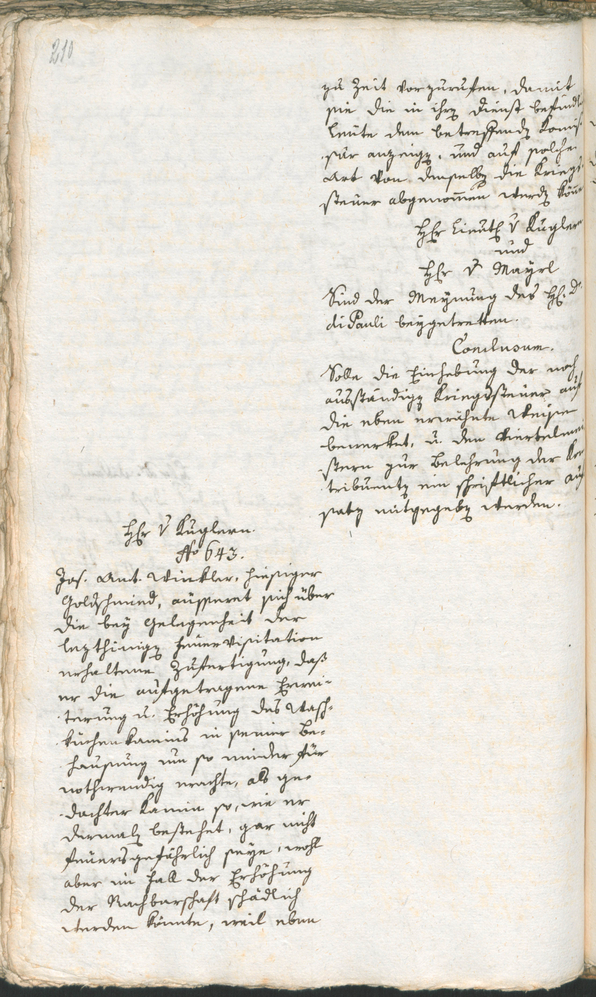 210
zu Zeit vorzurufen, damit
sie die in ihrz Dienst befindt
Leute dem betreffendz Komis-
sär anzeigz, und auf solche
Art von denselbz die Kriegs
steuer abgenommen werdz könn
HHr Lieut: v Kugler
und
HHr v Mayrl
Sind der Meynung des HH: D:
di Pauli beygetretten.
Conclusum.
Solle die Einhebung der noch
ausständigz Kriegssteuer auf
die eben erwehnte Weise
bewerket, u. den Viertelmei
stern zur Belehrung der Kon
tribuentz ein schriftlicher Auf
satz mitgegebz werden.
HHr v Kuglern.
No 643.
Jos. Ant. Winkler, hiesiger
Goldschmied, äusseret sich über
die bey Gelegenheit der
lezthinigz Feuervisitation
erhaltene Zufertigung, daß
er die aufgetragene Erwei-
terung u. Erhöhung des Wasch-
küchenkamins in seiner Be-
hausung um so minder für
nothwendig erachte, als ge-
dachter Kamin so, wie er
dermalz bestehet, gar nicht
feuersgefährlich seye, wohl
aber im Fall der Erhöhung
der Nachbarschaft schädlich
werden könnte, weil eben